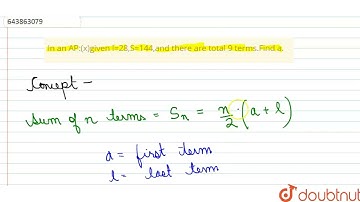 643863079
In an AP:(x)given l=28,S=144,and there are total 9 terms.Find a.
Concept -
Sum of n terms = Sn = n/2 (a + l)
a = first term
l = last term
doubtnut